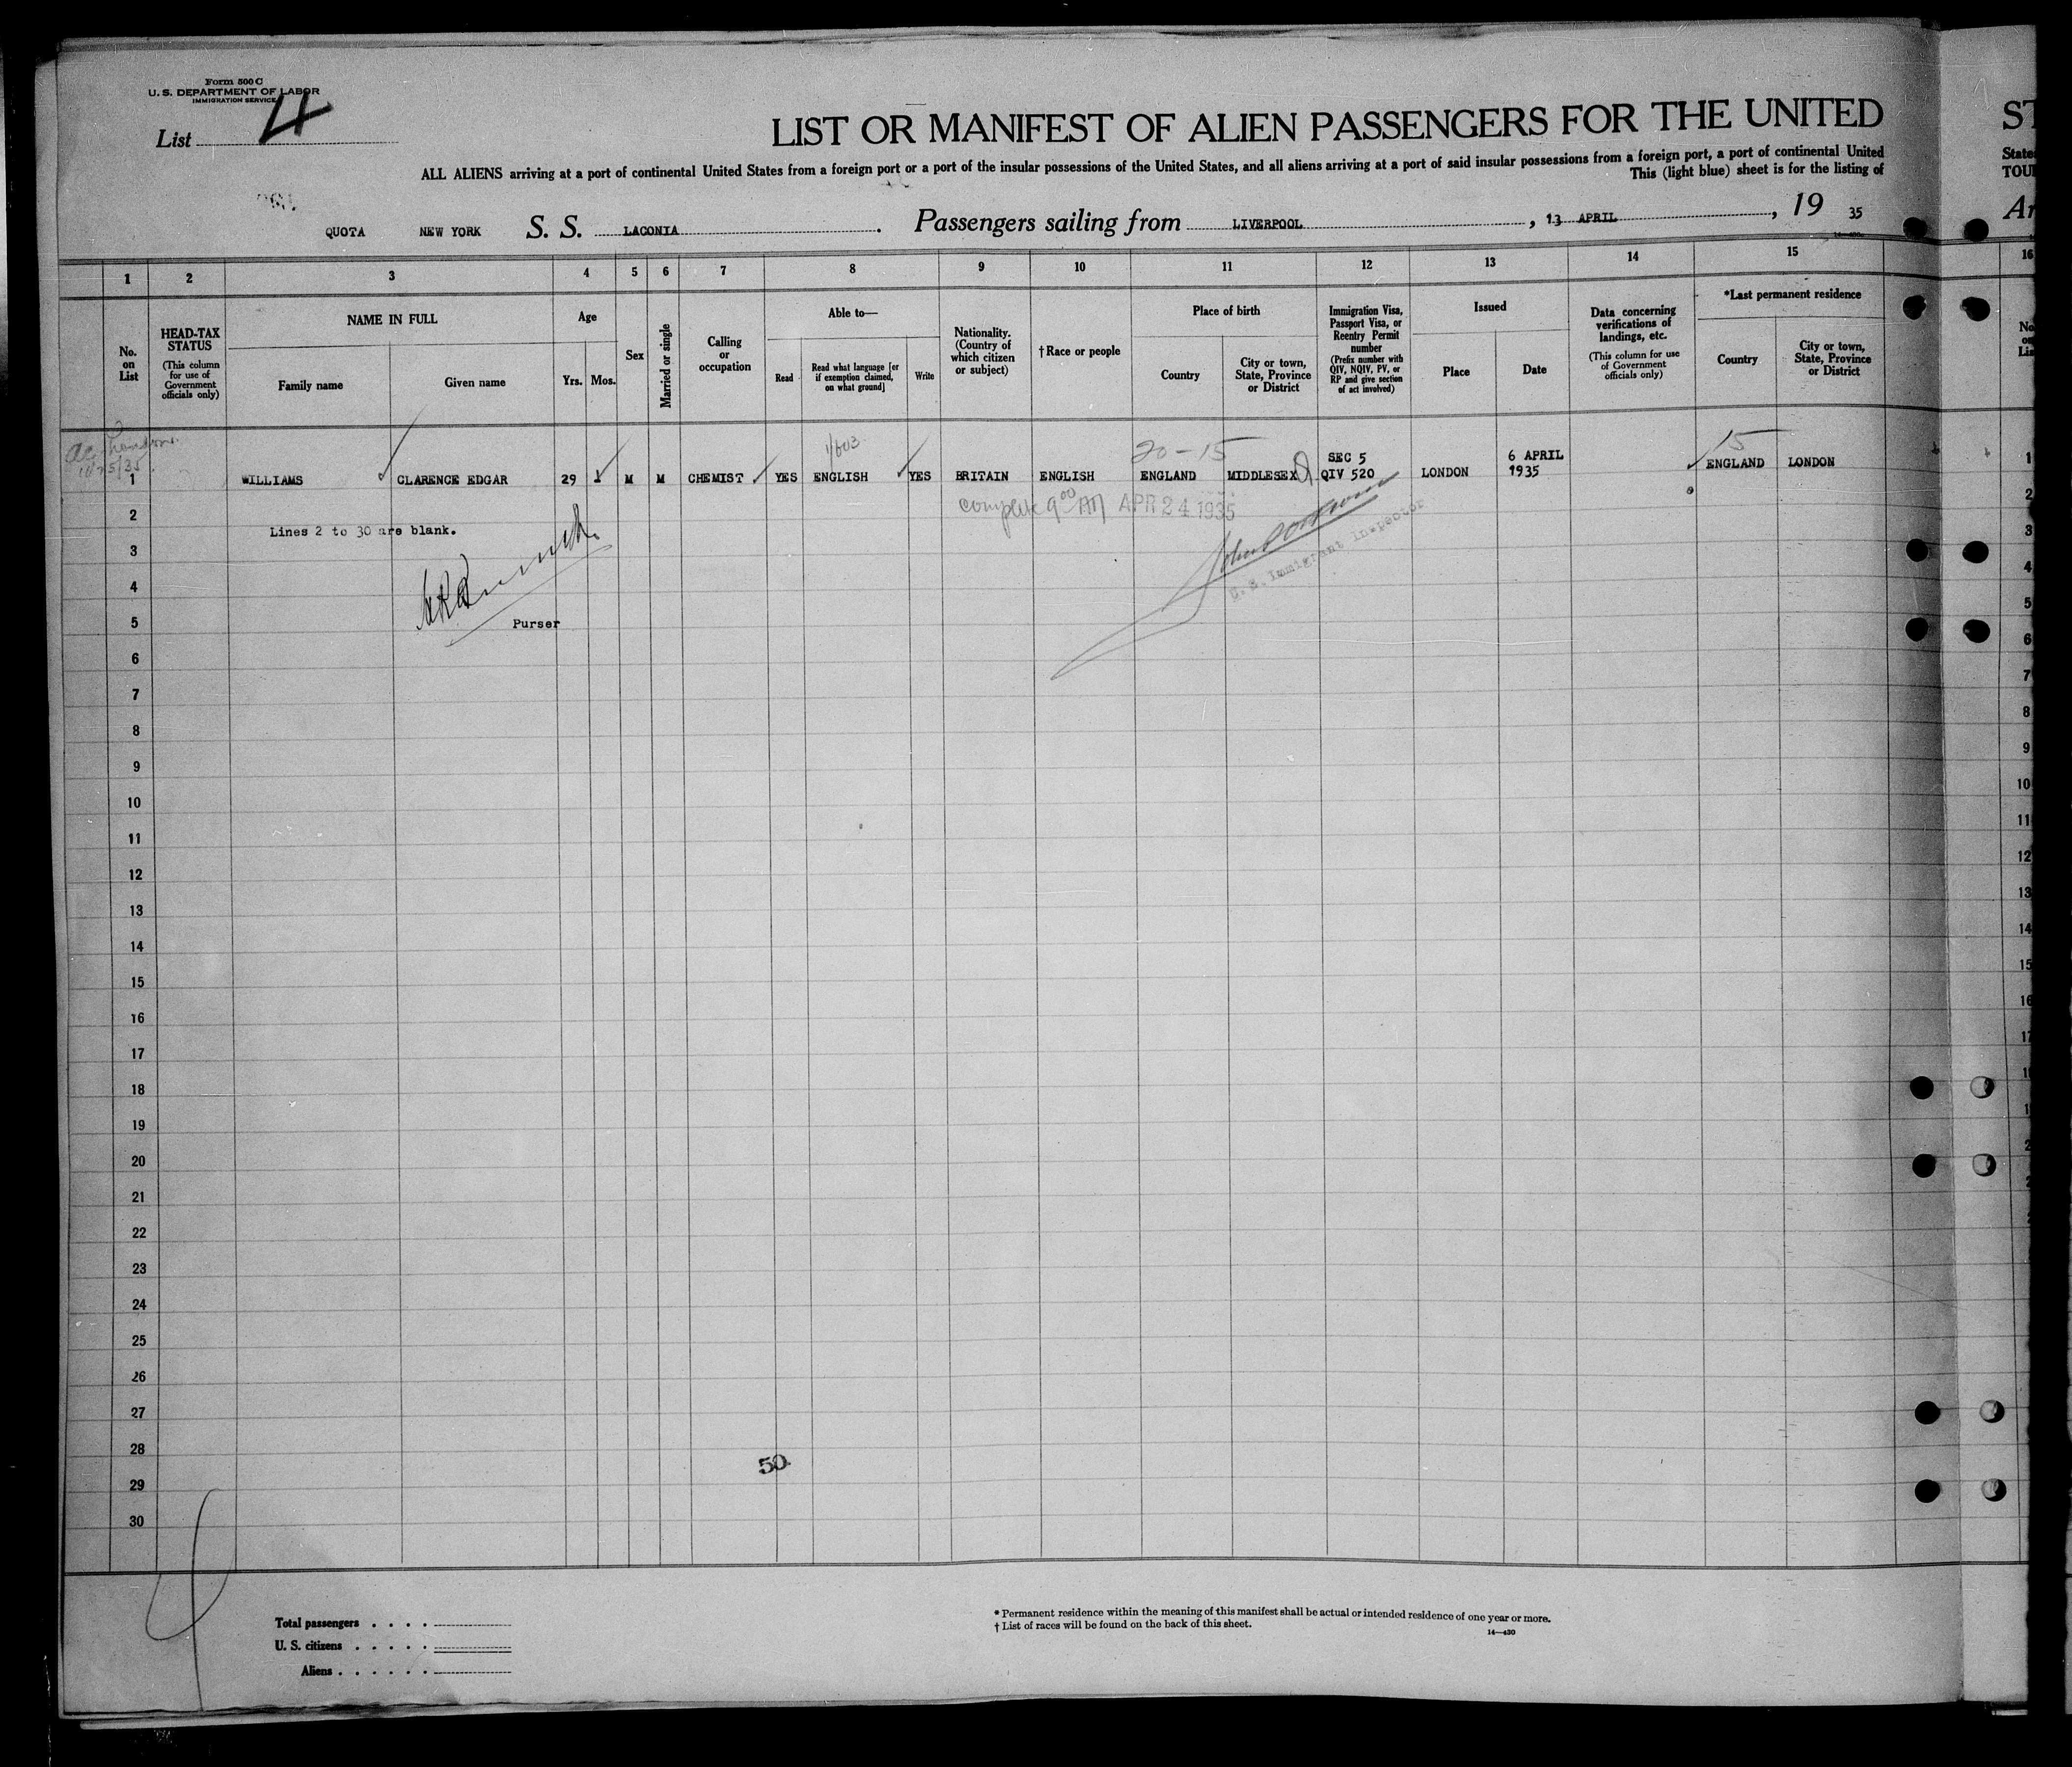 Form 500 C
U. S. DEPARTMENT OF LABOR
IMMIGRATION SERVICE
List 4
LIST OR MANIFEST OF ALIEN PASSENGERS FOR THE UNITED
ST
ALL ALIENS arriving at a port of continental United States from a foreign port or a port of the insular possessions of the United States, and all aliens arriving at a port of said insular possessions from a foreign port, a port of continental United
State
This (light blue) sheet is for the listing of
TOU
QUOTA NEW YORK S. S. LACONIA. Passengers sailing from LIVERPOOL, 13 APRIL, 19 35
Ar
1 2 3 4 5 6 7 8 9 10 11 12 13 14 15 16
No. on List
HEAD-TAX STATUS
(This column for use of Government officials only)
NAME IN FULL
Family name
Given name
Age
Yrs.
Mos.
Sex
Married or single
Calling or occupation
Able to—
Read
Read what language [or if exemption claimed, on what ground]
Write
Nationality. (Country of which citizen or subject)
†Race or people
Place of birth
Country
City or town, State, Province or District
Immigration Visa, Passport Visa, or Reentry Permit number
(Prefix number with QIV, NQIV, PV, or RP and give section of act involved)
Issued
Place
Date
Data concerning verifications of landings, etc.
(This column for use of Government officials only)
*Last permanent residence
Country
City or town, State, Province or District
20-15
15
SEC 5
6 APRIL
1 WILLIAMS CLARENCE EDGAR 29 1 M M CHEMIST YES ENGLISH YES BRITAIN ENGLISH ENGLAND MIDDLESEX QIV 520 LONDON 1935 ENGLAND LONDON 1
complete 9 00 AM APR 24 1935
2
Lines 2 to 30 are blank.
3
U. S. Immigrant Inspector
4
5
Purser
6
7
8
9
10
11
12
13
14
15
16
17
18
19
20
21
22
23
24
25
26
27
28
50
29
30
4
Total passengers . . . .
U. S. citizens . . . . .
Aliens . . . . . .
* Permanent residence within the meaning of this manifest shall be actual or intended residence of one year or more.
† List of races will be found on the back of this sheet.
14—430